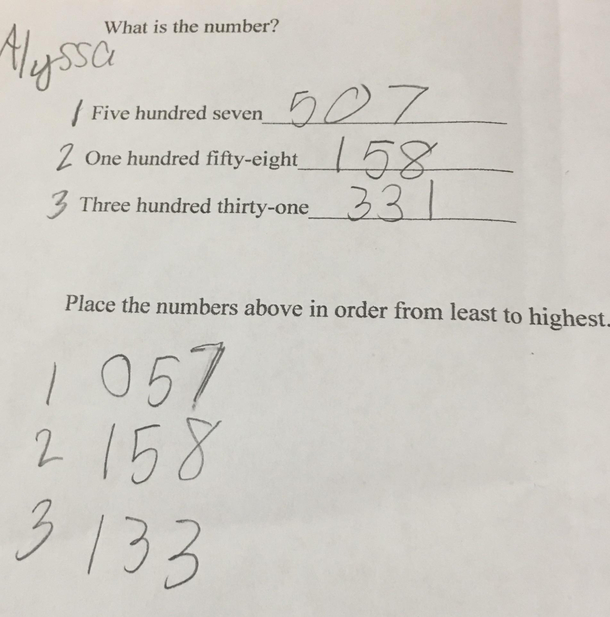 What is the number?
Alyssa
1 Five hundred seven 507
2 One hundred fifty-eight 158
3 Three hundred thirty-one 331
Place the numbers above in order from least to highest.
1 057
2 158
3 133